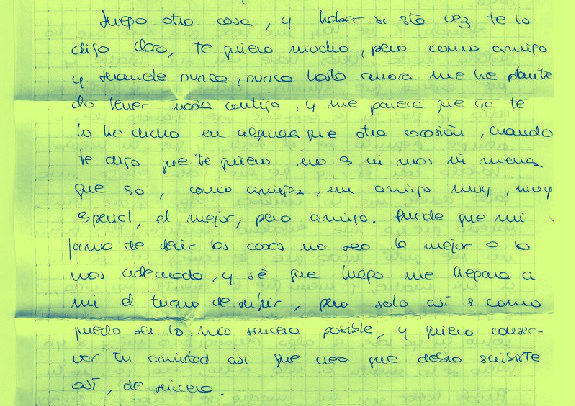 Luego otra cosa, y haber si esta vez te lo
digo claro, te quiero mucho, pero como amigo
y nunca, nunca hasta ahora me he plantea
do tener nada contigo, y me parece que ya te
lo he dicho en alguna que otra ocasión, cuando
te digo que te quiero no es ni mas ni menos
que eso, como amigo, un amigo muy, muy
especial, el mejor, pero amigo. Puede que mi
forma de decir las cosas no sea la mejor o la
mas adecuada, y sé que luego me llegara a
mi el turno de sufrir, pero solo así es como
puedo ser lo más sincera posible, y quiero conser-
var tu amistad asi que creo que debo escribirte
así, de sincera.